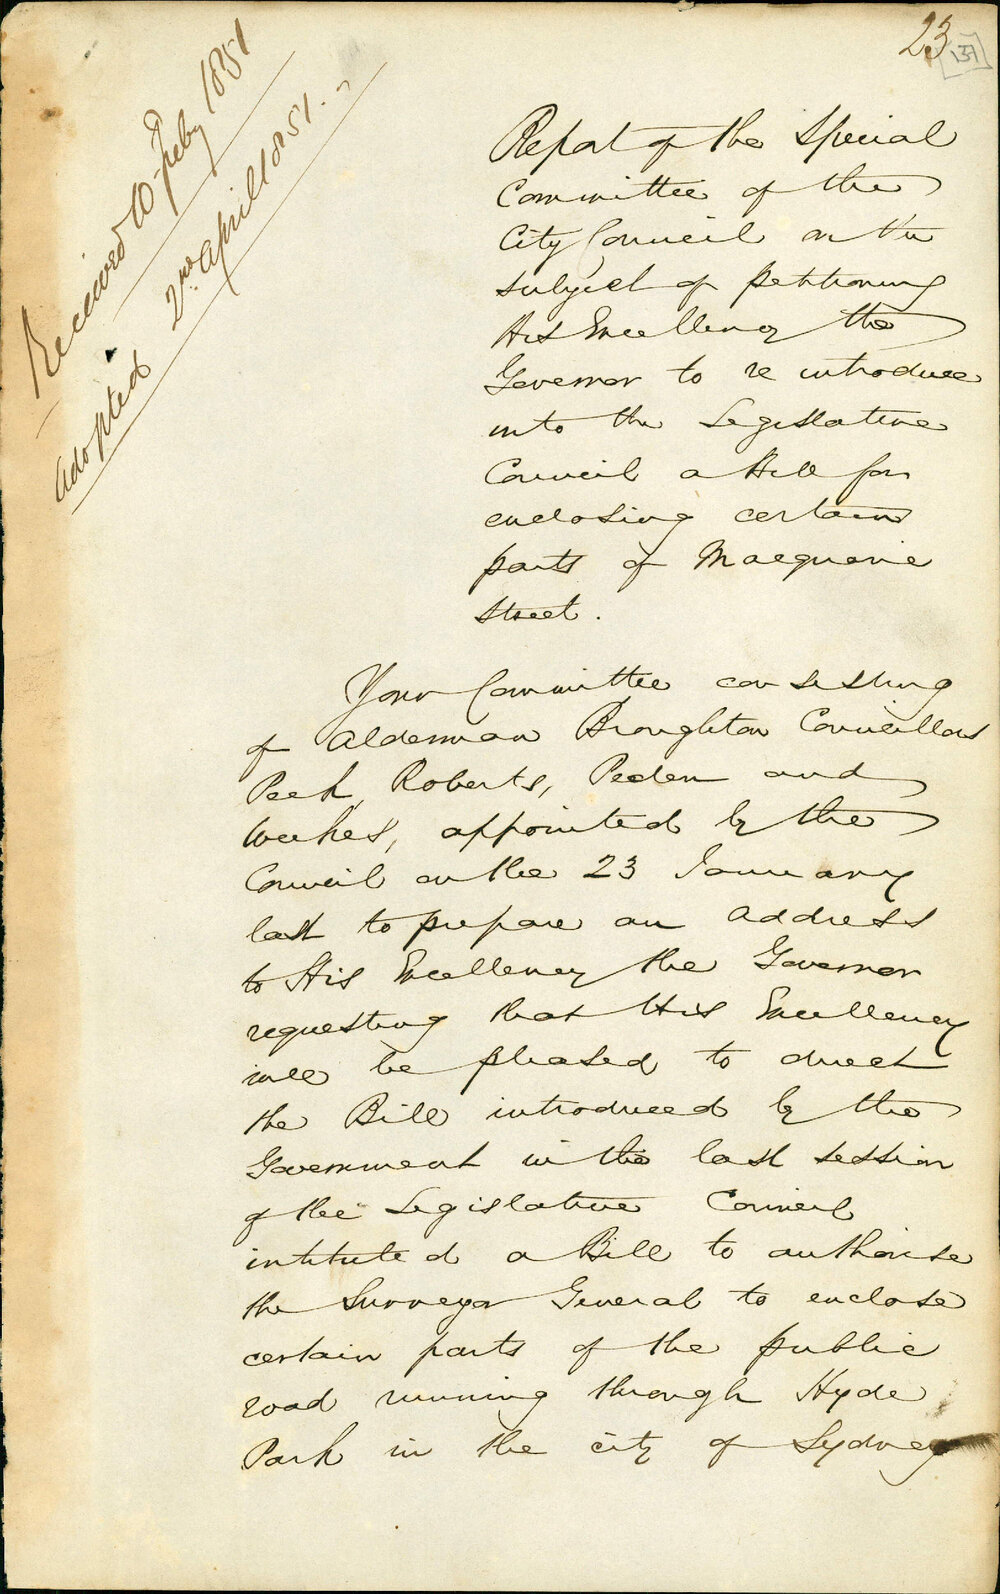 23
137
Received 10 Feby 1851
adopted 2nd April 1851.
Report of the Special
Committee of the
City Council on the
subject of petitioning
His Excellency the
Governor to re introduce
into the Legislative
Council a Bill for
enclosing certain
parts of Macquarie
Street.
Your Committee consisting
of Alderman Broughton Councillors
Peek, Roberts, Peden and
Weekes, appointed by the
Council on the 23 January
last to prepare an address
to His Excellency the Governor
requesting that His Excellency
will be pleased to direct
the Bill introduced by the
Government in the last session
of the Legislative Council
intituted a Bill to authorise
the Surveyor General to enclose
certain parts of the public
road running through Hyde
Park in the city of Sydney